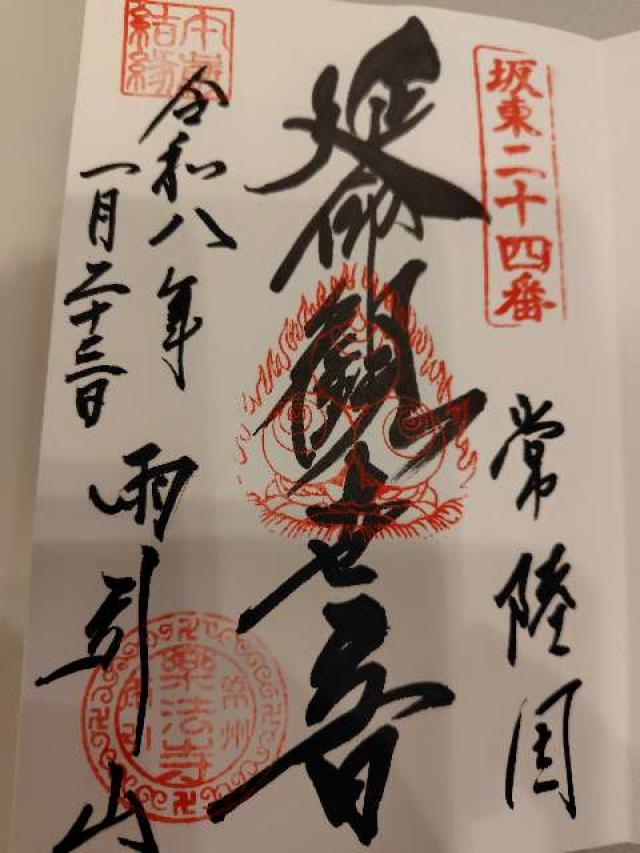 坂東二十四番
常陸国
延命観世音
本尊
結縁
令和八年
一月二十三日
雨引山
常州
樂法寺
雨引